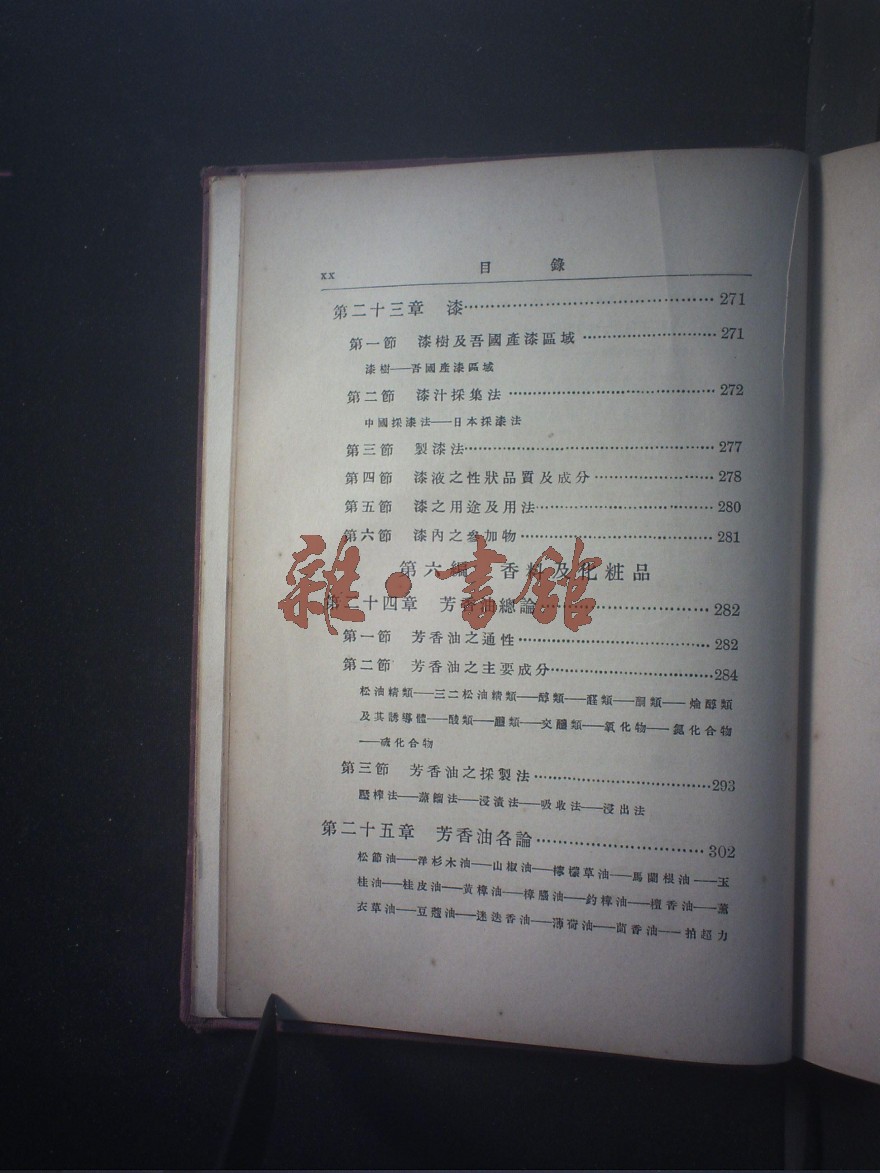 xx 目錄
第二十三章 漆……271
第一節 漆樹及吾國產漆區域……271
漆樹——吾國產漆區域
第二節 漆汁採集法……272
中國採漆法——日本採漆法
第三節 製漆法……277
第四節 漆液之性狀品質及成分……278
第五節 漆之用途及用法……280
第六節 漆內之參加物……281
雜·書館
第六編 香料及化粧品
第二十四章 芳香油總論……282
第一節 芳香油之通性……282
第二節 芳香油之主要成分……284
松油精類——三二松油精類——醇類——醛類——酮類——烯醇類
及其誘導體——酸類——類——交類——氧化物——氮化合物
——硫化合物
第三節 芳香油之採製法……293
壓榨法——蒸餾法——浸漬法——吸收法——浸出法
第二十五章 芳香油各論……302
松節油——洋杉木油——山椒油——檸檬草油——馬蘭根油——玉
桂油——桂皮油——黃樟油——樟腦油——釣樟油——檀香油——薰
衣草油——豆蔻油——迷迭香油——薄荷油——茴香油——拍超力